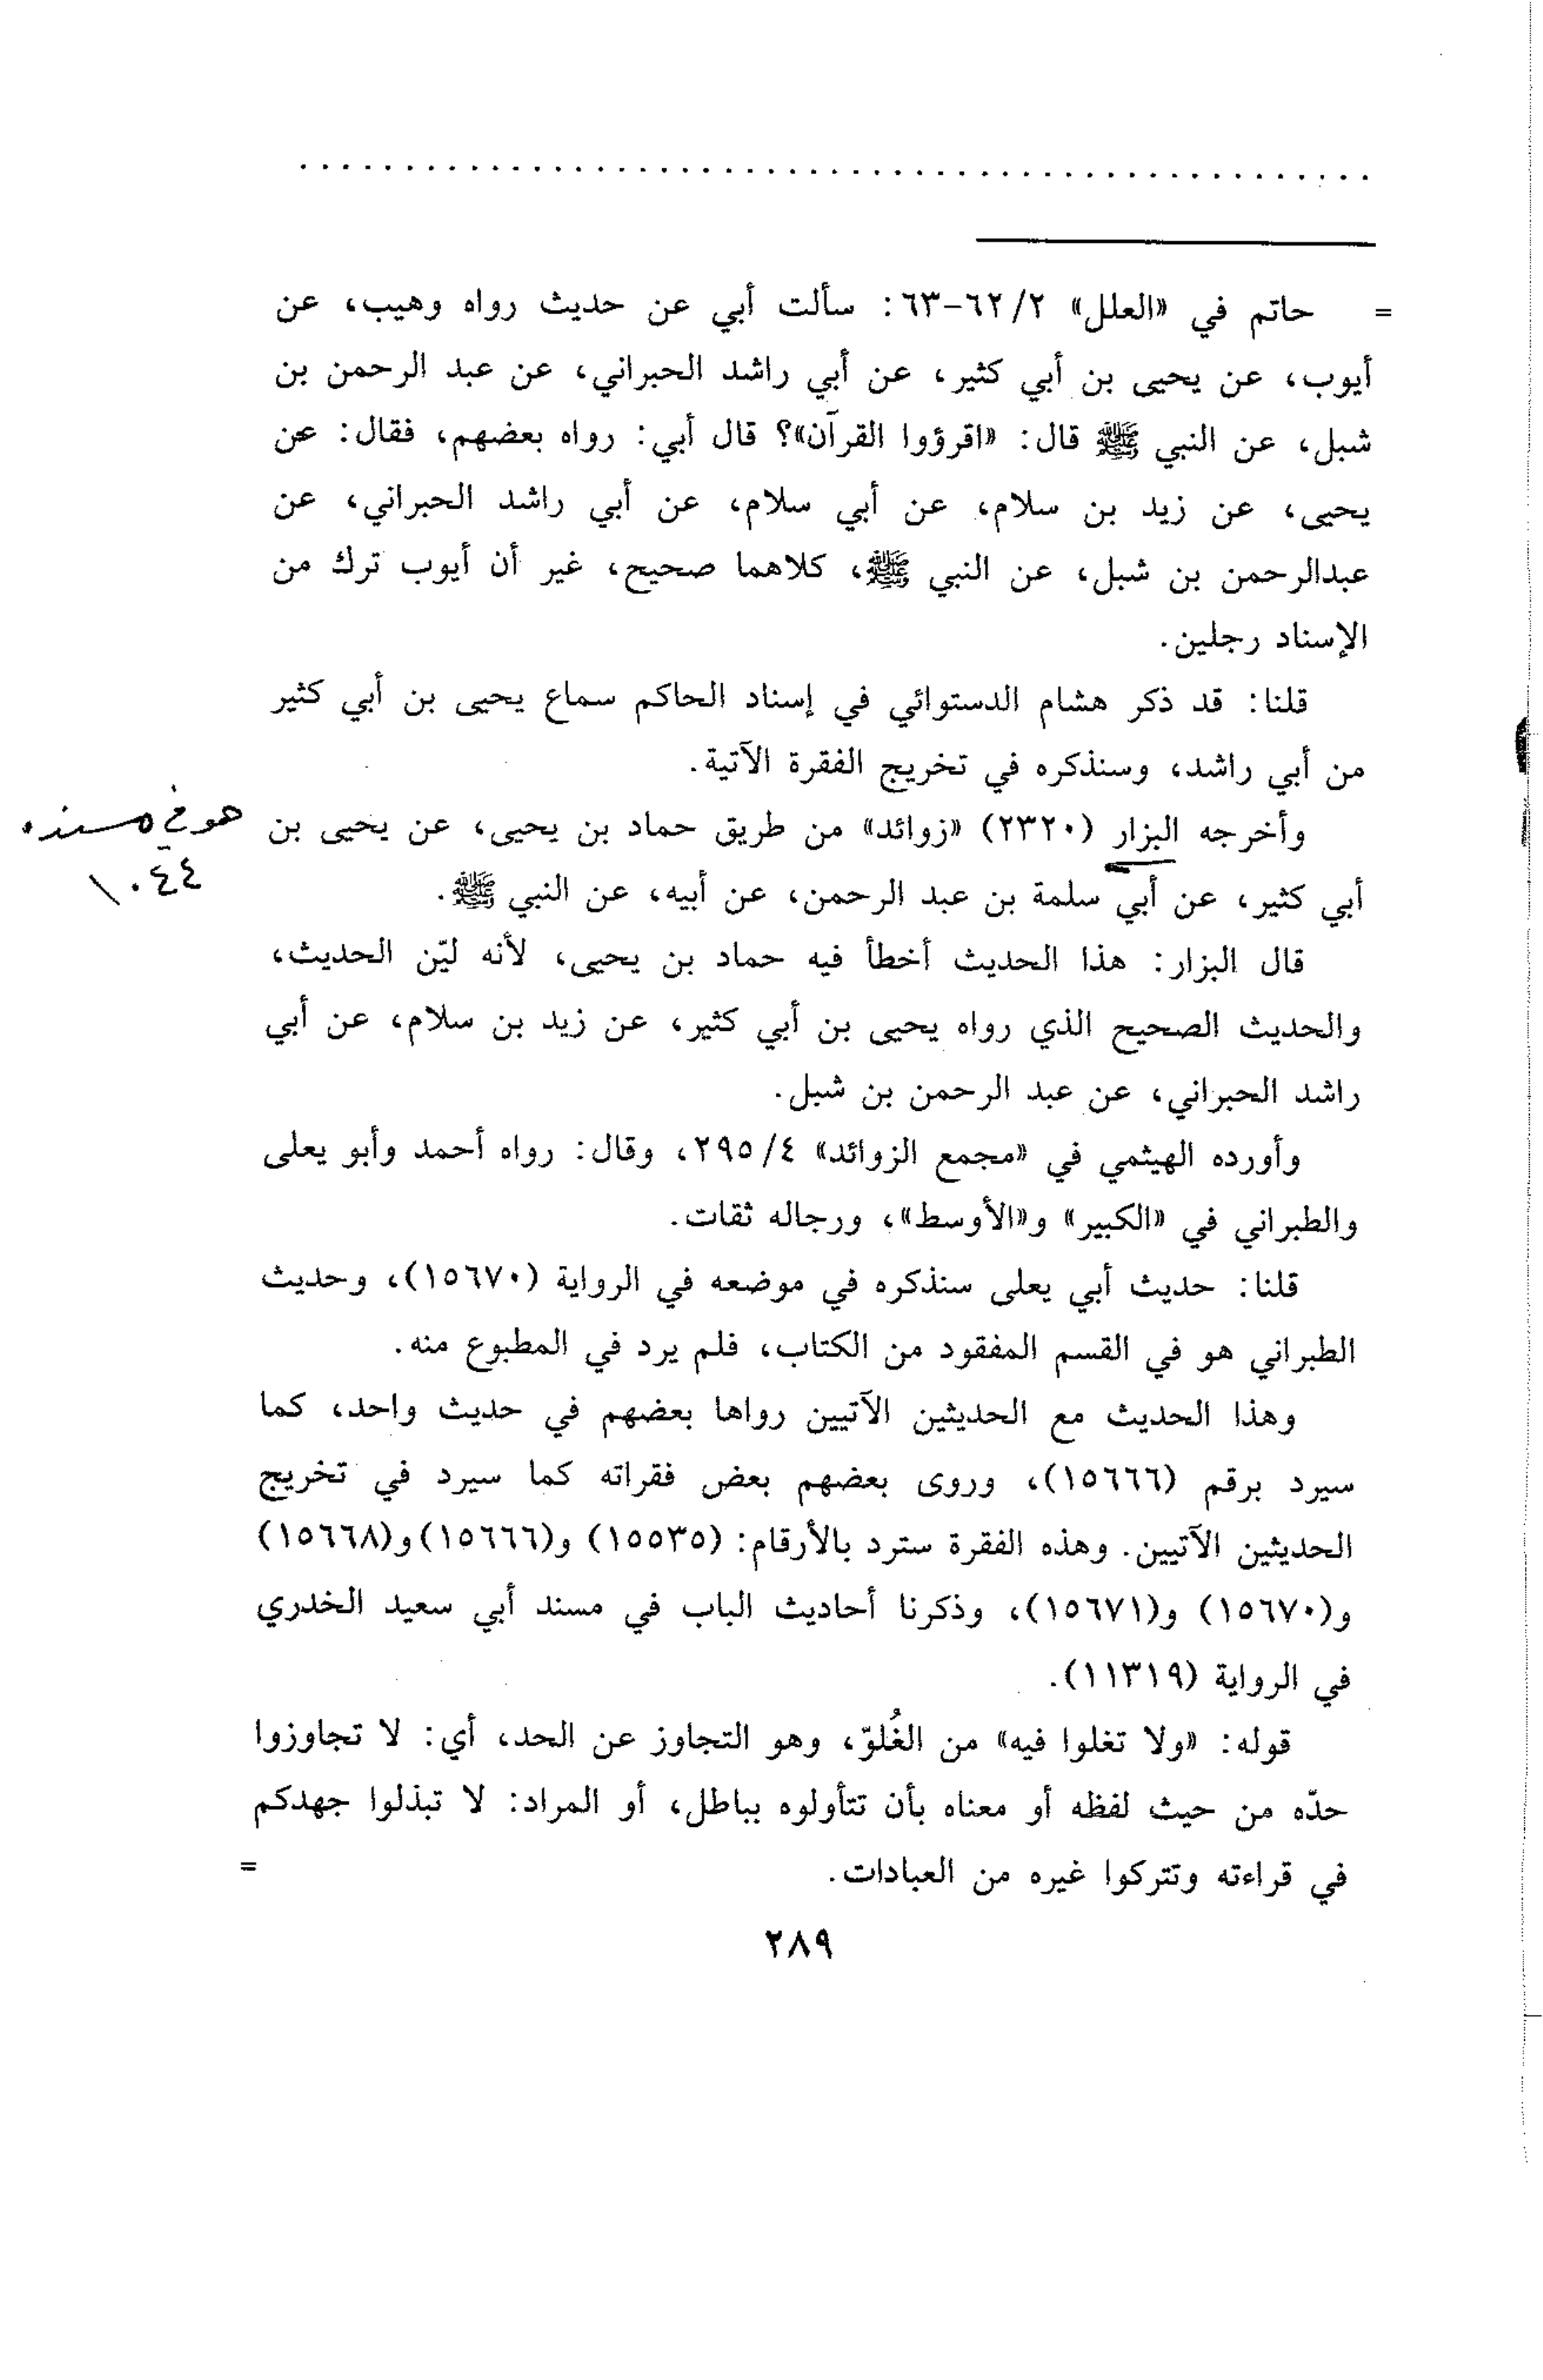 = حاتم في «العلل» ٢/ ٦٢-٦٣: سألت أبي عن حديث رواه وهيب، عن
أيوب، عن يحيى بن أبي كثير، عن أبي راشد الحبراني، عن عبد الرحمن بن
شبل، عن النبي ﷺ قال: «اقرؤوا القرآن»؟ قال أبي: رواه بعضهم، فقال: عن
يحيى، عن زيد بن سلام، عن أبي سلام، عن أبي راشد الحبراني، عن
عبدالرحمن بن شبل، عن النبي ﷺ، كلاهما صحيح، غير أن أيوب ترك من
الإسناد رجلين.
قلنا: قد ذكر هشام الدستوائي في إسناد الحاكم سماع يحيى بن أبي كثير
من أبي راشد، وسنذكره في تخريج الفقرة الآتية.
وأخرجه البزار (٢٣٢٠) «زوائد» من طريق حماد بن يحيى، عن يحيى بن
هو في مسنده
١٠٤٤
أبي كثير، عن أبي سلمة بن عبد الرحمن، عن أبيه، عن النبي ﷺ.
قال البزار: هذا الحديث أخطأ فيه حماد بن يحيى، لأنه ليّن الحديث،
والحديث الصحيح الذي رواه يحيى بن أبي كثير، عن زيد بن سلام، عن أبي
راشد الحبراني، عن عبد الرحمن بن شبل.
وأورده الهيثمي في «مجمع الزوائد» ٤/ ٢٩٥، وقال: رواه أحمد وأبو يعلى
والطبراني في «الكبير» و«الأوسط»، ورجاله ثقات.
قلنا: حديث أبي يعلى سنذكره في موضعه في الرواية (١٥٦٧٠)، وحديث
الطبراني هو في القسم المفقود من الكتاب، فلم يرد في المطبوع منه.
وهذا الحديث مع الحديثين الآتيين رواها بعضهم في حديث واحد، كما
سيرد برقم (١٥٦٦٦)، وروى بعضهم بعض فقراته كما سيرد في تخريج
الحديثين الآتيين. وهذه الفقرة سترد بالأرقام: (١٥٥٣٥) و(١٥٦٦٦) و(١٥٦٦٨)
و(١٥٦٧٠) و(١٥٦٧١)، وذكرنا أحاديث الباب في مسند أبي سعيد الخدري
في الرواية (١١٣١٩).
قوله: «ولا تغلوا فيه» من الغُلوّ، وهو التجاوز عن الحد، أي: لا تجاوزوا
حدّه من حيث لفظه أو معناه بأن تتأولوه بباطل، أو المراد: لا تبذلوا جهدكم
في قراءته وتتركوا غيره من العبادات. =
٢٨٩